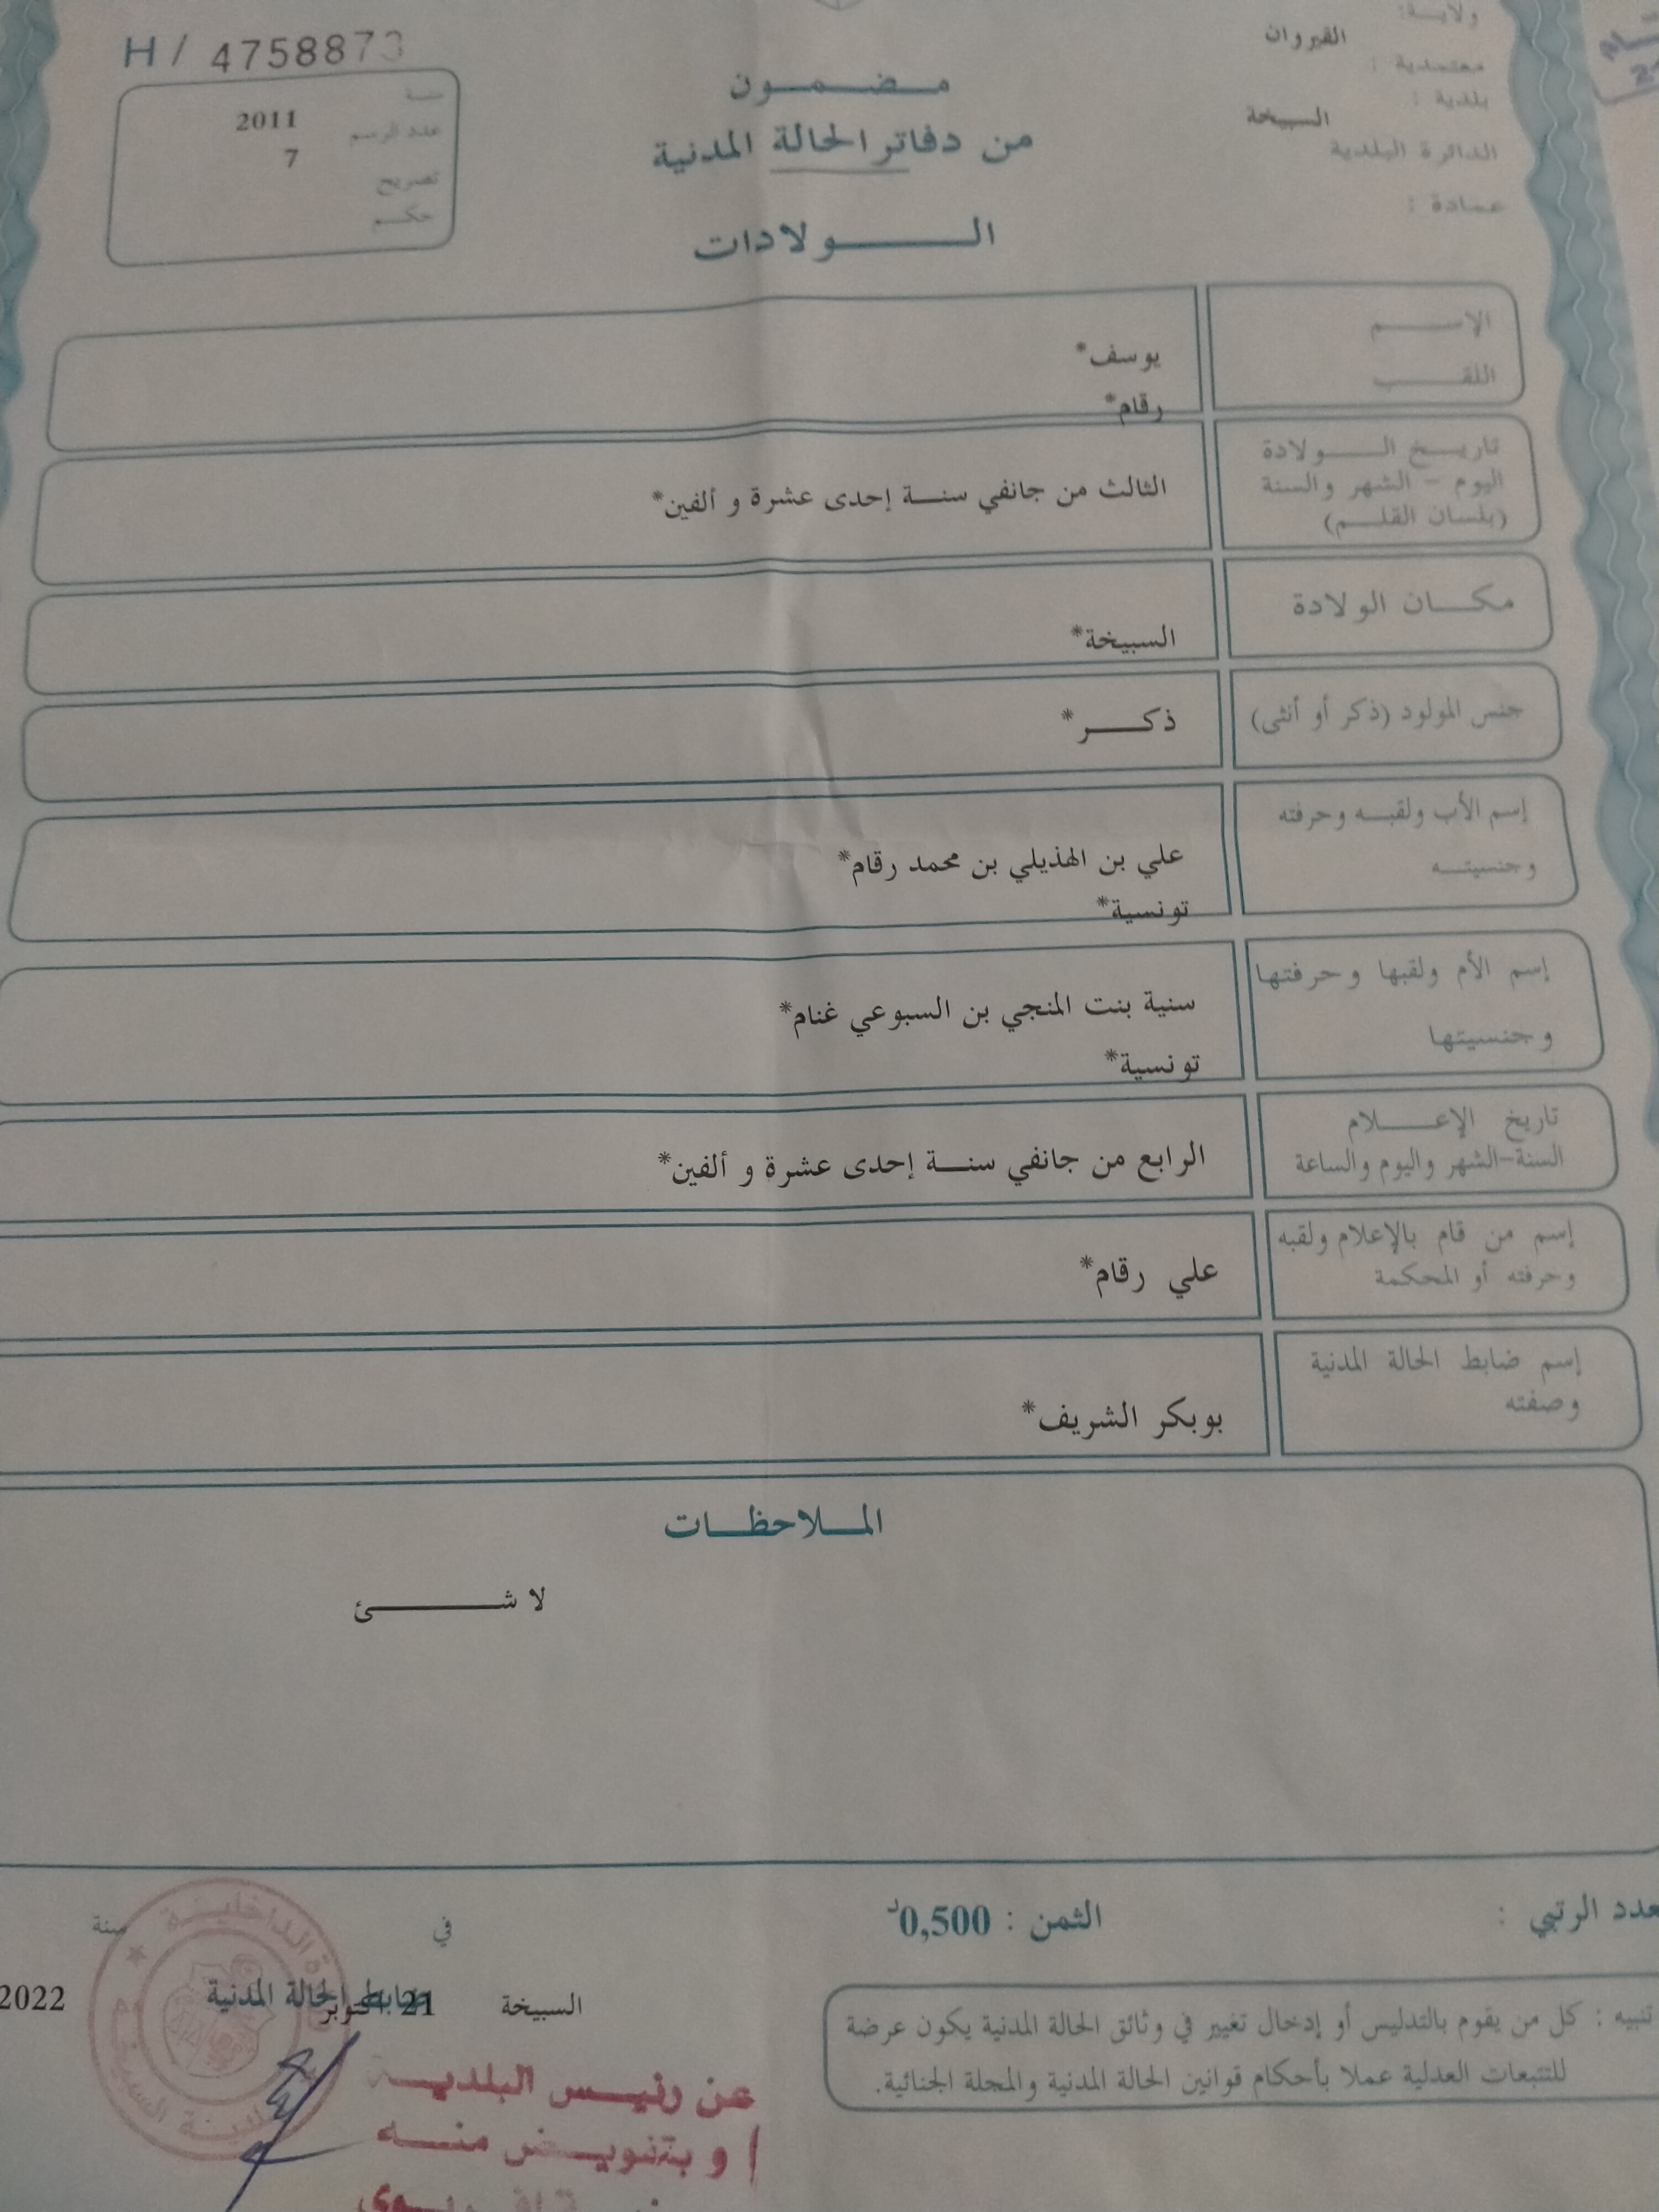 H / 4758873
ولاية: القيروان
معتمدية :
بلدية : السبيخة
الدائرة البلدية
عمادة :
سنة 2011
عدد الرسم 7
تصريح
حكم
مضمون
من دفاتر الحالة المدنية
الولادات
الإسم يوسف*
اللقب رقام*
تاريخ الولادة
اليوم - الشهر والسنة
(بلسان القلم)
الثالث من جانفي سنة إحدى عشرة و ألفين*
مكان الولادة
السبيخة*
جنس المولود (ذكر أو أنثى)
ذكر*
إسم الأب ولقبه وحرفته
وجنسيته
علي بن الهذيلي بن محمد رقام*
تونسية*
إسم الأم ولقبها وحرفتها
وجنسيتها
سنية بنت المنجي بن السبوعي غنام*
تونسية*
تاريخ الإعلام
السنة-الشهر واليوم والساعة
الرابع من جانفي سنة إحدى عشرة و ألفين*
إسم من قام بالإعلام ولقبه
وحرفته أو المحكمة
علي رقام*
إسم ضابط الحالة المدنية
وصفته
بوبكر الشريف*
الملاحظات
لا شئ
عدد الرتبي :
الثمن : 0,500د
في سنة
السبيخة 21 أكتوبر 2022
ضابط الحالة المدنية
تنبيه : كل من يقوم بالتدليس أو إدخال تغيير في وثائق الحالة المدنية يكون عرضة
للتتبعات العدلية عملا بأحكام قوانين الحالة المدنية والمجلة الجنائية.
عن رئيس البلدية
و بتفويض منه